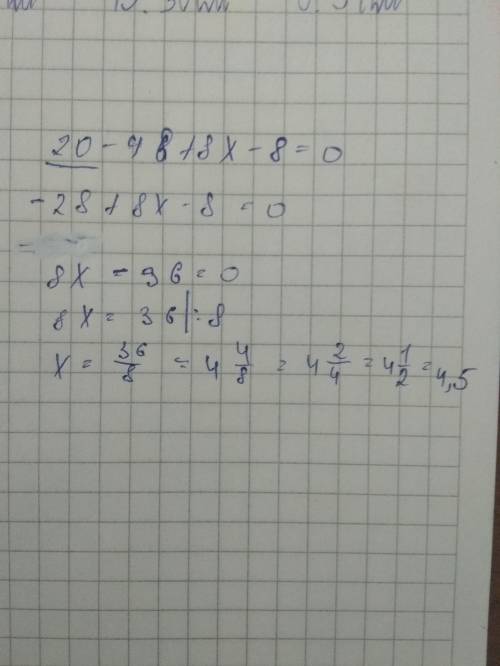 20 - 48 + 8x - 8 = 0
-28 + 8x - 8 = 0
8x - 36 = 0
8x = 36 | : 8
x = 36/8 = 4 4/8 = 4 2/4 = 4 1/2 = 4,5